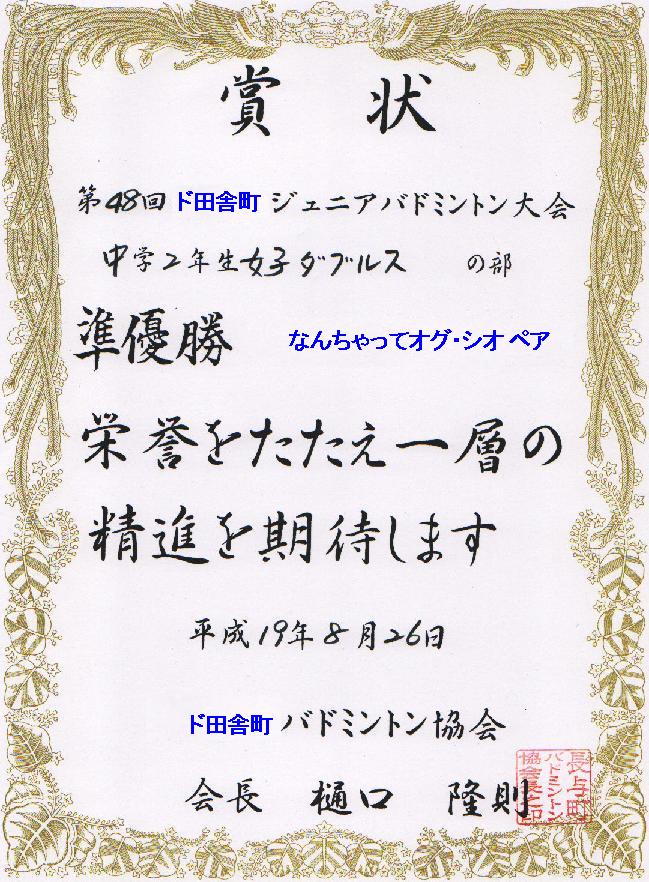 賞状
第48回 ド田舎町 ジュニアバドミントン大会
中学2年生女子ダブルス の部
準優勝 なんちゃってオグ・シオ ペア
栄誉をたたえ一層の
精進を期待します
平成19年8月26日
ド田舎町 バドミントン協会
会長 樋口 隆則
長与町
バドミントン
協会長之印